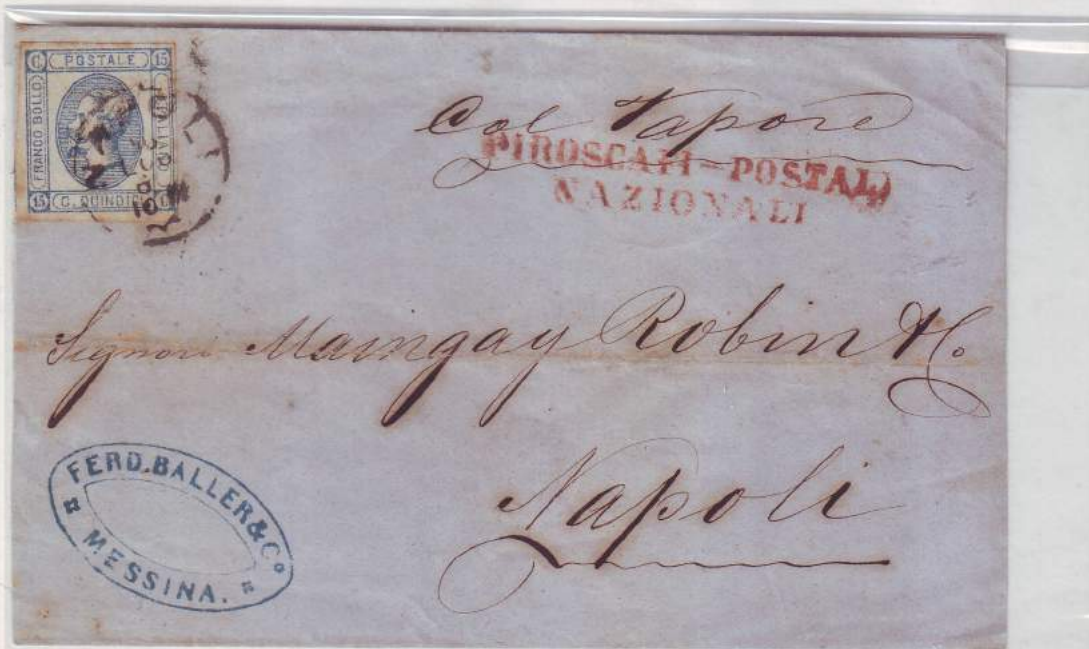 C POSTALE 15
FRANCO BOLLO
15 C. QUINDICI C
Col Vapore
PIROSCAFI-POSTALI
NAZIONALI
Signori Maingay Robin & Co
Napoli
FERD. BALLER & Co
MESSINA.